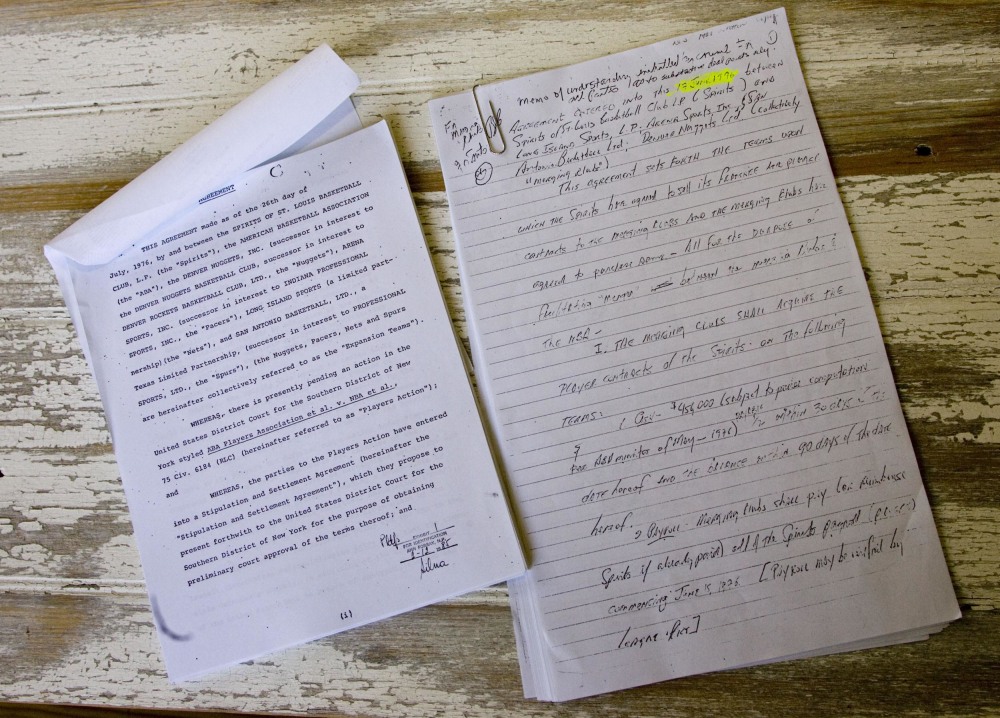 AGREEMENT
THIS AGREEMENT made as of the 26th day of
July, 1976, by and between the SPIRITS OF ST. LOUIS BASKETBALL
CLUB, L.P. (the "Spirits"), the AMERICAN BASKETBALL ASSOCIATION
(the "ABA"), the DENVER NUGGETS, INC. (successor in interest to
the DENVER NUGGETS BASKETBALL CLUB, successor in interest to
DENVER ROCKETS BASKETBALL CLUB, LTD., the "Nuggets"), ARENA
SPORTS, INC. (successor in interest to INDIANA PROFESSIONAL
SPORTS, INC., the "Pacers"), LONG ISLAND SPORTS (a limited part-
nership) (the "Nets"), and SAN ANTONIO BASKETBALL, LTD., a
Texas Limited Partnership, (successor in interest to PROFESSIONAL
SPORTS, LTD., the "Spurs"), (the Nuggets, Pacers, Nets and Spurs
are hereinafter collectively referred to as the "Expansion Teams").
WHEREAS, there is presently pending an action in the
United States District Court for the Southern District of New
York styled ABA Players Association et al. v. NBA et al.,
75 Civ. 6184 (RLC) (hereinafter referred to as "Players Action");
and
WHEREAS, the parties to the Players Action have entered
into a Stipulation and Settlement Agreement (hereinafter the
"Stipulation and Settlement Agreement"), which they propose to
present forthwith to the United States District Court for the
Southern District of New York for the purpose of obtaining
preliminary court approval of the terms thereof; and
EXHIBIT 1
FOR IDENTIFICATION
(1)
Memo of understanding initialled by counsel
as to substantive deal points only.
Agreement entered into this 17 June 1976 between
Spirits of St. Louis Basketball Club L.P. (Spirits) and
Long Island Sports, L.P., Arena Sports, Inc., San
Antonio Basketball Ltd., Denver Nuggets Ltd (collectively
"merging clubs")
This agreement sets forth the terms upon
which the Spirits has agreed to sell its player
contracts to the merging clubs and the merging clubs have
agreed to purchase same - all for the purpose of
facilitating "merger" between the merging clubs &
the NBA -
I. The merging clubs shall acquire the
player contracts of the Spirits on the following
terms:
1 $456,000 (subject to computation
for ABA of May - 1976) 1/2 within 30 days of the
date hereof and the balance within 90 days of the date
hereof.
2 Payroll - Merging clubs shall pay (or reimburse
Spirits if already paid) all of the Spirits payroll
commencing June 1976 [Payroll may be verified by